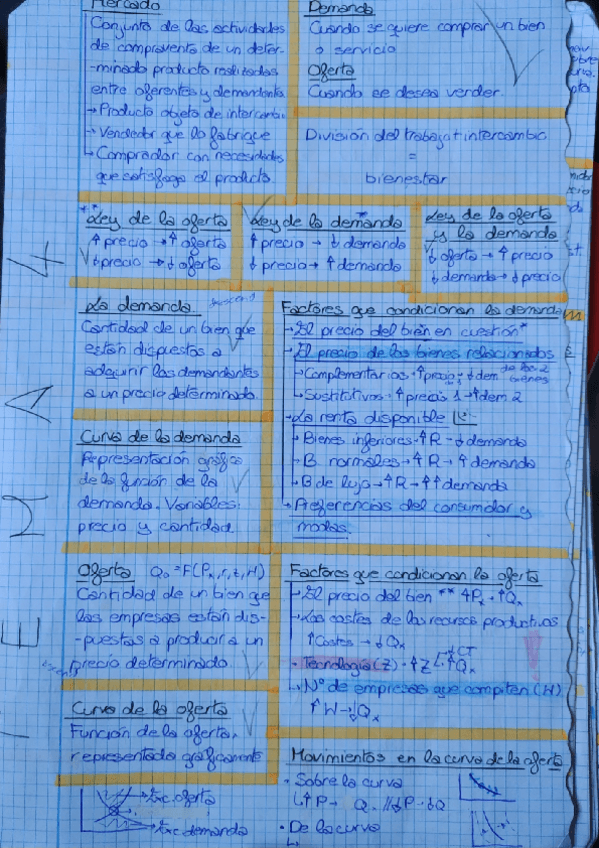 Mercado
Conjunto de las actividades
de compraventa de un deter-
-minado producto realizadas
entre oferentes y demandantes
→ Producto objeto de intercambio
→ Vendedor que lo fabrique
↳ Comprador con necesidades
que satisfaga el producto.
Demanda
Cuando se quiere comprar un bien
o servicio
Oferta
Cuando se desea vender
División del trabajo + intercambio
=
bienestar
** Ley de la oferta
↑ precio → ↑ oferta
↓ precio → ↓ oferta
Ley de la demanda *
↑ precio → ↓ demanda
↓ precio → ↑ demanda
Ley de la oferta
y la demanda
↓ oferta → ↑ precio
↓ demanda → ↓ precio
La demanda
Cantidad de un bien que
están dispuestos a
adquirir los demandantes
a un precio determinado
Factores que condicionan la demanda
→ El precio del bien en cuestión *
→ El precio de los bienes relacionados
→ Complementarios · ↑ precio → ↓ dem de los 2 bienes
→ Sustitutivos · ↑ precio 1 → ↑ dem 2
→ La renta disponible
→ Bienes inferiores → ↑ R → ↓ demanda
→ B normales → ↑ R → ↑ demanda
→ B de lujo → ↑ R → ↑↑ demanda
→ Preferencias del consumidor y
modas.
Curva de la demanda
Representación gráfica
de la función de la
demanda. Variables:
precio y cantidad
Oferta Qo = F(Px, r, z, H)
Cantidad de un bien que
las empresas están dis-
-puestas a producir a un
precio determinado.
Factores que condicionan la oferta
→ El precio del bien ** ↑Px · ↑Qx
→ Los costes de los recursos productivos
↑ Costes → ↓ Qx
· Tecnología (z) · ↑ z ↓ CT ↑ Qx
↳ Nº de empresas que compiten (H)
↑ H → ↓ Qx
Curva de la oferta
Función de la oferta,
representada gráficamente
exc. oferta
exc demanda
Movimientos en la curva de la oferta
· Sobre la curva
↳ ↑ P → Q // ↓ P · ↓ Q
· De la curva
↳